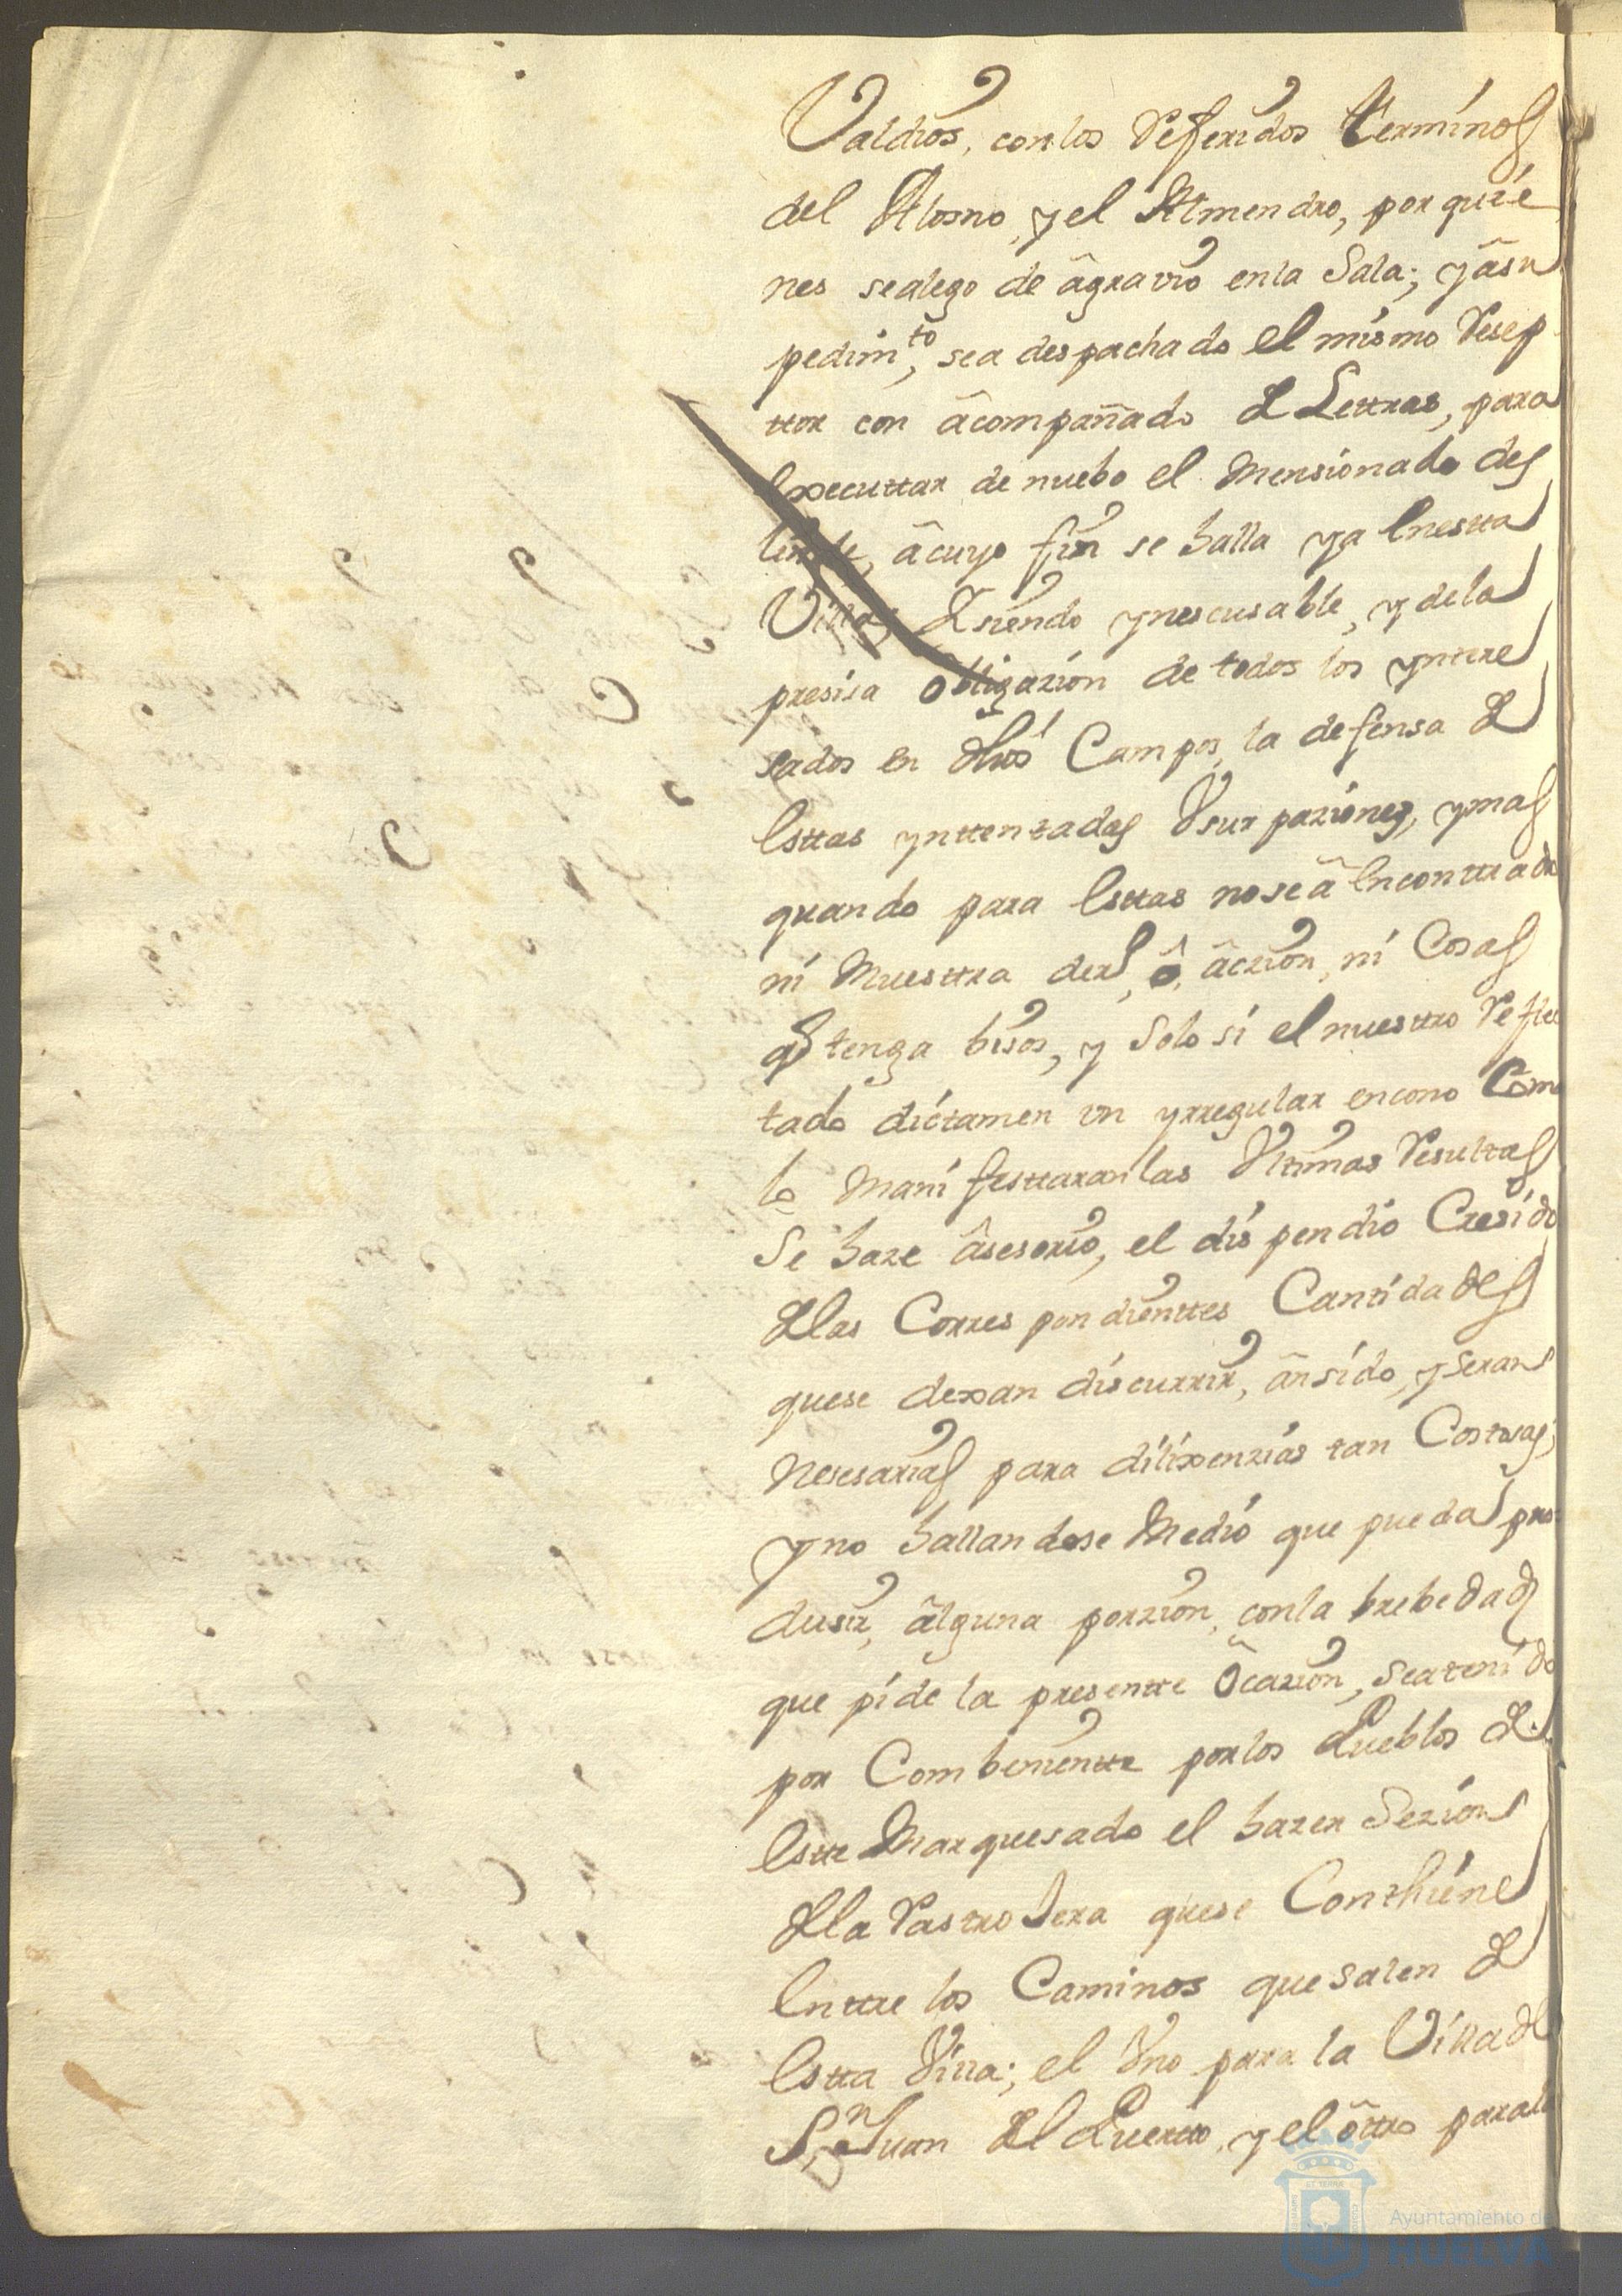 Valdios, con los Referidos terminos
del Alosno, y el Almendro, por quie
nes se alego de âgravio en la Sala; y âsu
pedim.to, sea despachado el mismo Resep
ttor con âcompañado de Lettras, para
executtar de nuebo el mensionado des
linde, âcuyo fin se halla ya en estta
Villa, siendo ynescusable, y dela
presisa obligazion de todos los yntere
sados en dhos Campos, la defensa de
esttas ynttentadas Vsurpaziones, y mas
quando para esttas no se â encontrado
ni muesttra der.o, ô, âczion, ni Cosa
q tenga bisos, y solo si el nuesttro
tado dictamen un yrregular encono Como
lo manifesttaran las Vltimas Resultas
Se haze âsesorio, el dispendio Cresido
de las Correspondienttes Cantidades
que se dexan discurrir, ân sido, y seran
nesesarias para dilixenzias tan Costosas;
y no hallandose medio que pueda pro
dusir, âlguna porzion, con la brebedad
que pide la presentte Ôcazion, sea tenido
por Combenientte por los Pueblos de
estte Marquesado el hazer Sezion
de la Rastrojera que se Conthiene
enttre los Caminos que salen de
estta Villa; el Vno para la Villa de
S.n Juan del Puertto, y el ôttro para la
Ayuntamiento de
HUELVA